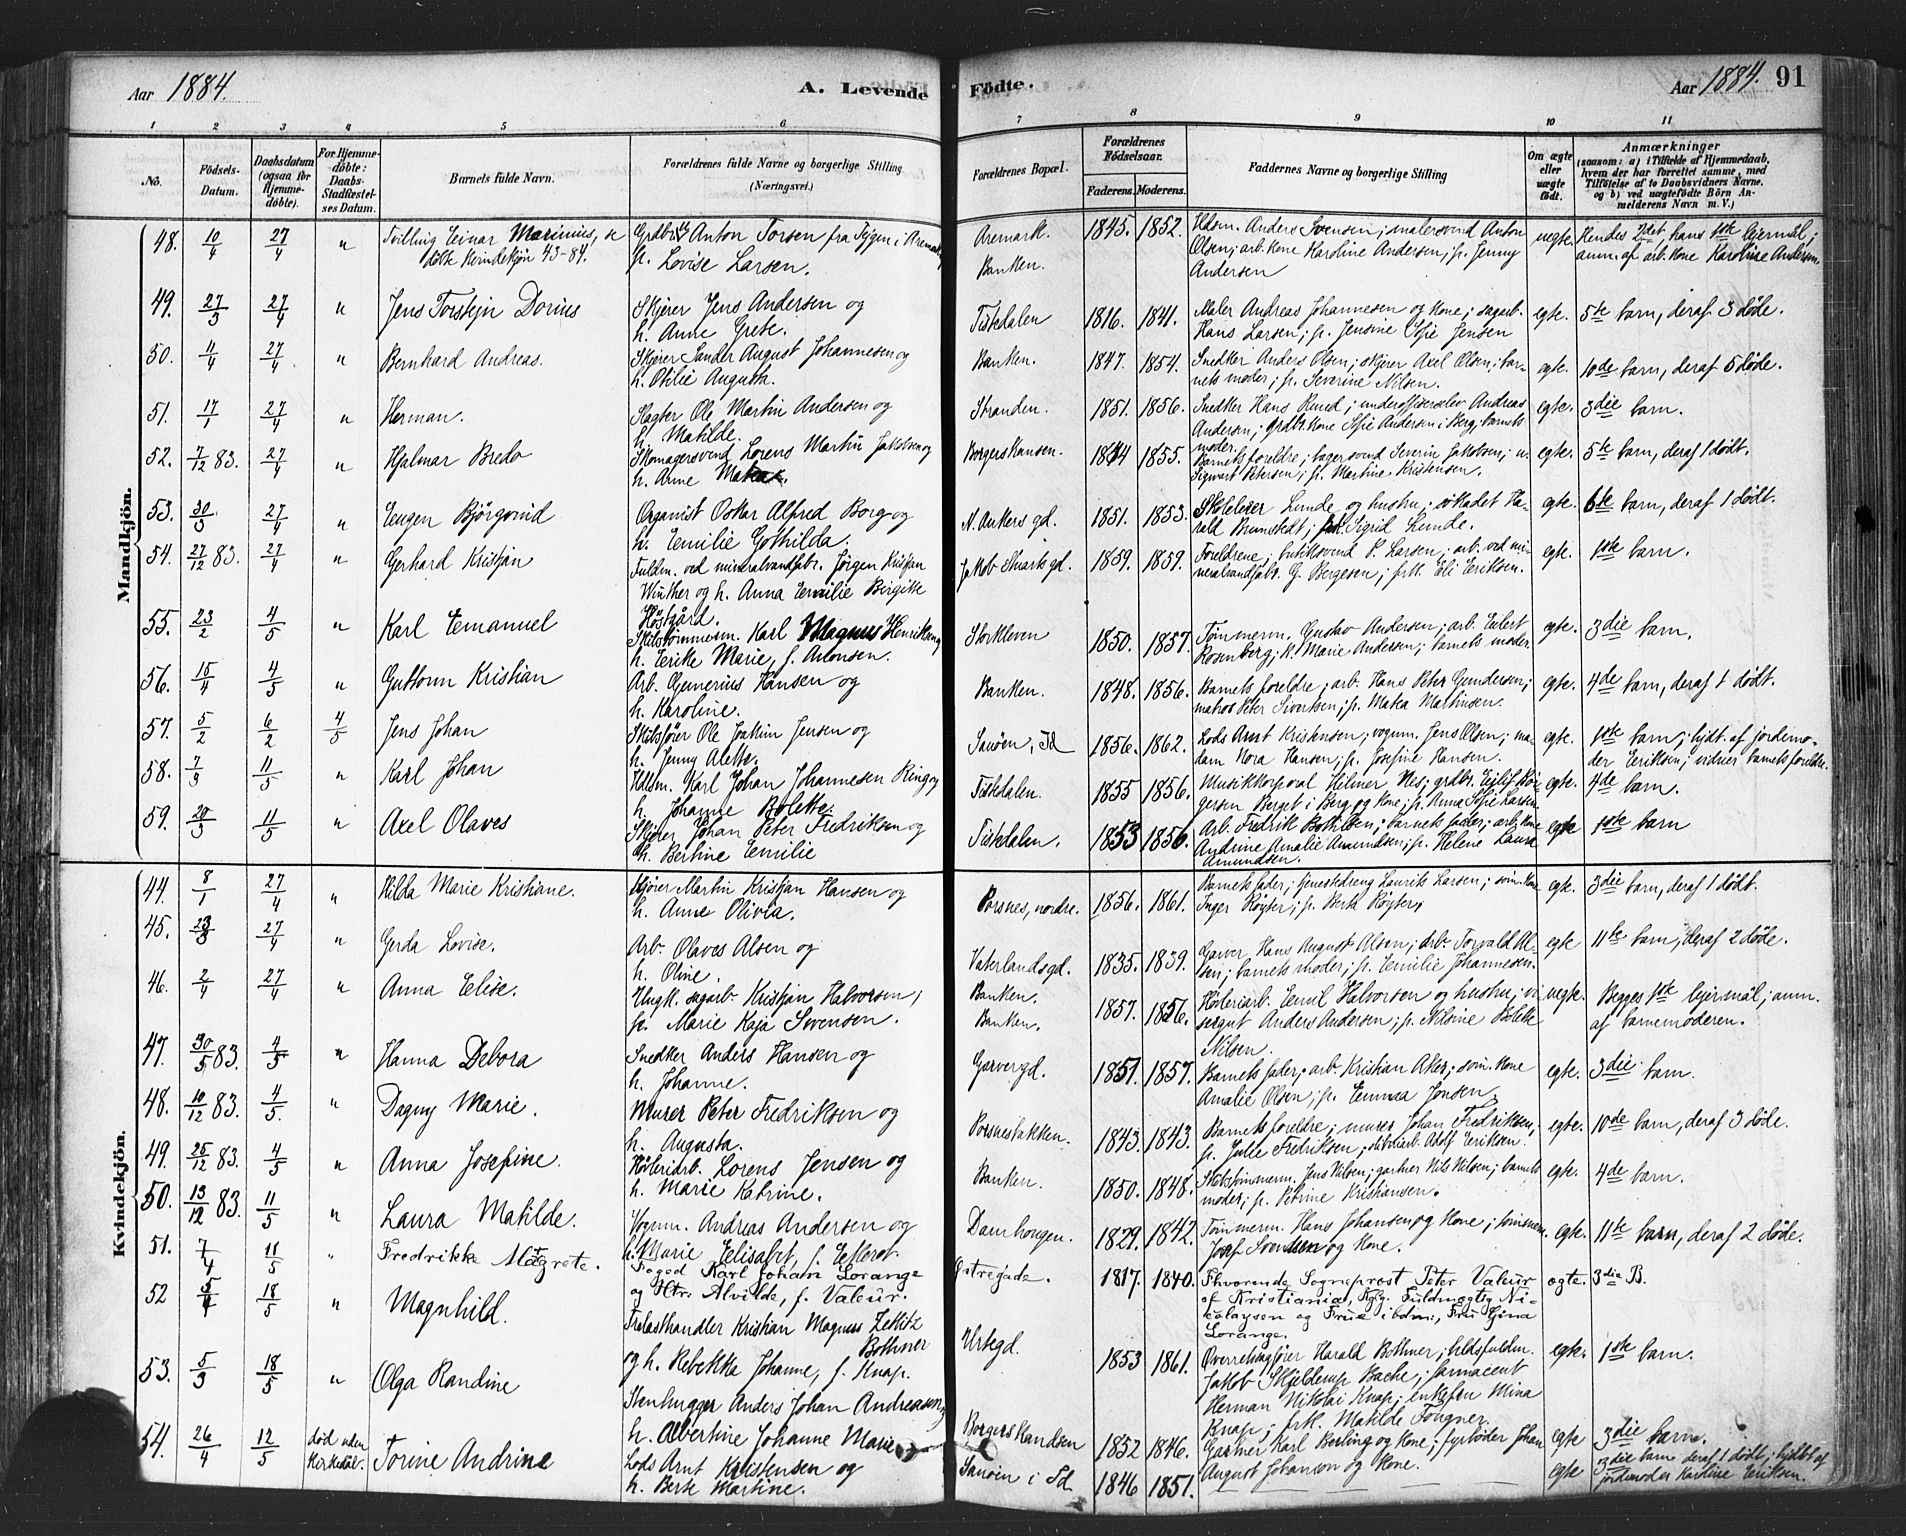 Aar 1884.
A. Levende
Födte.
Aar 1884. 91
1 2 3 4 5 6 7 8 9 10 11
No.
Födsels-Datum.
Daabsdatum (ogsaa for Hjemme-döbte).
For Hjemme-döbte: Daabs-Stadfæstel-ses Datum.
Barnets fulde Navn.
Forældrenes fulde Navne og borgerlige Stilling (Næringsvei.)
Forældrenes Bopæl.
Forældrenes Födselsaar.
Faderens. Moderens.
Faddernes Navne og borgerlige Stilling
Om ægte eller uægte födt.
Anmærkninger
(saasom: a) i Tilfælde af Hjemmedaab, hvem der har forrettet samme, med Tilföielse af to Daabsvidners Navne. og b) ved uægtefödte Börn An-melderens Navn m. V.)
Mandkjön.
48. 10/4 27/4 " Tvilling Einar Marinus, se
döbte Kvindekjön 43-84.
Anton Torsen fra Tygen i Aremark,
p. Lovise Larsen.
Aremark.
Banken.
1845. 1852. Husm. Anders Svensen; malersvend Anton
Olsen; arb. kone Karoline Andersen; p. Jenny
Andersen
uegte. Hendes 2det, hans 1ste lejermål;
anm. af arb. kone Karoline Andersen.
49. 27/3 27/4 " Jens Torstejn Dorius
Skjærer Jens Andersen og
h. Anne Grete.
Tistedalen 1816. 1841. Maler Andreas Johannesen og kone; sagarb.
Hans Larsen; p. Jensine Sofie Jensen
egte. 5te barn, deraf 3 döde.
50. 11/4 27/4 " Bernhard Andreas.
Skjærer Sander August Johannesen og
h. Otilie Augusta.
Banken. 1847. 1854. Snedker Anders Olsen; skjærer Axel Olsen; bar-
nets moder; p. Severine Nilsen.
egte. 10de barn, deraf 5 döde.
51. 17/1 27/4 " Herman.
Slagter Ole Martin Andersen og
h. Matilde.
Stranden. 1851. 1856. Snedker Hans Rund; underoffiserselev Andreas
Andersen; grdbr. kone Sofie Andersen i Berg; barnets
moder.
egte. 3die barn.
52. 7/12 83. 27/4 " Hjalmar Bredo
Skomagersvend Lorens Martin Jakobsen og
h. Anne
Borgerskansen. 1855. Barnets foreldre; bagersvend Severin Jakobsen; u.
Sigvart Petersen; p. Martine Kristensen.
egte. 5te barn, deraf 1 dödt.
53. 30/3 27/4 " Eugen Björgvind
Organist Oskar Alfred Borg og
h. Emilie Gothilda.
N. Ankers gd. 1851. 1853. Skoleleier Lunde og hustru; Ha-
rald Brunstedt; frk. Sigrid Lunde.
egte. 6te barn, deraf 1 dödt.
54. 27/12 83. 27/4 " Gerhard Kristjan
Fuldm. ved mineralvandfabr. Jörgen Kristjan
Winther og h. Anna Emilie Birgitte
Höstgård.
Jakob gd. 1859. 1859. Foreldrene; butiksvend P. Larsen; arb. ved mi-
neralvandfabr. G. Bergesen; frk. Eli Eriksen.
egte. 1ste barn.
55. 23/2 4/5 " Karl Emanuel
Skibstömmerm. Karl Magnus Henriksen og
h. Erike Marie, f. Antonsen.
Storkleven 1850. 1857. Tömmerm. Gustav Andersen; arb. Eilert
Rosenberg; k. Marie Andersen; barnets moder.
egte. 3die barn.
56. 15/4 4/5 " Guttorm Kristian
Arb. Gunerius Hansen og
h. Karoline.
Banken. 1848. 1856. Barnets foreldre; arb. Hans Peter Gundersen;
matros Peter Sivertsen; p. Matea Mathisen.
egte. 4de barn, deraf 1 dödt.
57. 5/2 6/2 4/5 Jens Johan
Skibsförer Ole Joakim Jensen og
h. Jenny Alette.
Sauöen, Id 1856. 1862. Lods Arnt Kristensen; vognm. Jens Olsen; ma-
dam Nora Hansen; p. Josefine Hansen.
egte. 1ste barn; hjdt. af jordemo-
der Eriksen; vidner barnets foreldre.
58. 7/3 11/5 " Karl Johan
Husm. Karl Johan Johannesen Ring og
h. Johanne Bolette.
Tistedalen. 1855 1856. Musikkorporal Helmer Nes; grdbr. Ejlif
Berget i Berg og kone; p. Anna Sofie Larsen
egte. 4de barn.
59. 20/3 11/5 " Axel Olaves
Skjærer Johan Peter Fredriksen og
h. Bertine Emilie
Tistedalen. 1853 1856. Arb. Fredrik Bottilsen; barnets fader; arb. kone
Andrine Amalie Amundsen; p. Helene Laura
Amundsen.
egte 1ste barn
Kvindekjön.
44. 8/1 27/4 " Hilda Marie Kristiane.
Kjörer Martin Kristjan Hansen og
h. Anne Olivia.
Porsnes, nordre. 1856. 1861. Barnets fader; tjenestedreng Laurits Larsen; söm. kone
Inger Röyter; p. Berta Röyter.
egte. 3die barn, deraf 1 dödt.
45. 23/3 27/4 " Gerda Lovise.
Arb. Olaves Alsen og
h. Oline.
Vaterlandsgd. 1835. 1839. Garver Hans August Alsen; arb. Torvald Al-
sen; barnets moder; p. Emilie Johannesen.
egte 11te barn, deraf 2 döde.
46. 2/4 27/4 " Anna Elise.
Ungk. sagarb. Kristjan Halvorsen;
p. Marie Kaja Svensen.
Banken.
Banken.
1857. 1856. Höleriarb. Emil Halvorsen og hustru; vi
sergut Anders Andersen; p. Nilsine Bolette
Nilsen.
uegte. Begges 1ste lejermål; anm.
af barnemoderen.
47. 30/5 83. 4/5 " Hanna Debora
Snedker Anders Hansen og
h. Johanne.
Garvergd. 1851. 1857. Barnets fader; arb. Kristian Aker; söm. kone
Amalie Olsen; p. Emma Jensen.
egte. 3die barn.
48. 10/12 83. 4/5. " Dagny Marie.
Murer Peter Fredriksen og
h. Augusta.
Porsnesbakken. 1843. 1843. Barnets foreldre; murer Johan Fredriksen;
p. Julle Fredriksen; Adolf Eriksen.
egte. 10de barn, deraf 3 döde.
49. 25/12 83. 4/5 " Anna Josefine.
Höleriarb. Lorens Jensen og
h. Marie Katrine.
Banken. 1850. 1848. Skibstömmerm. Jens Nilsen; gartner Nils Nilsen; barnets
moder; p. Petrine Kristiansen.
egte. 4de barn.
50. 13/12 83. 11/5 " Laura Matilde.
Vognm. Andreas Andersen og
h. Marie Elisabet, f.
Damhougen. 1829. 1842. Tömmerm. Hans Johansen og kone; tömmerm.
Josef Svendsen og kone.
egte. 11te barn, deraf 2 döde.
51. 7/4 11/5 " Fredrikke Magrete.
Foged Karl Johan Lorange
og Htr. Alvilde, f. Valeur.
Östregade. 1817. 1840. Fhværende Sogneprost Peter Valeur
af Kristiania, Kgl. Fuldmægtig Ni-
colaysen og Frue ibdm., Fru Gina
Lorange.
ægte. 3die B.
52 5/4 18/5 " Magnhild.
Trelasthandler Kristian Magnus Zetlitz
Bothner
og h. Rebekka Johanne, f. Knap.
Urtegd. 1853 1861. Overretssagförer Harald Bothner; fuldm.
Jakob Skjelderup Bache; farmacevt
Herman Nikolai Knap; enkefru Mina
Knap; frk. Matilde Fougner.
egte. 1ste barn.
53. 5/3 18/5 " Olga Randine
Stenhugger Anders Johan Andreasson og
h. Albertine Johanne Marie
Borgerskandsen 1852 1846. Gartner Karl Berling og kone; fyrböder Johan
August Johanson og kone.
egte 3die barn.
54. 26/4 12/5 död uden
kirkedåb. Torine Andrine
Lods Arnt Kristensen og
h. Berte Martine.
Sauöen i Id 1846 1851.
egte 3die barn deraf 1 dödt; hjdt af
jordemoder Karoline Eriksen.